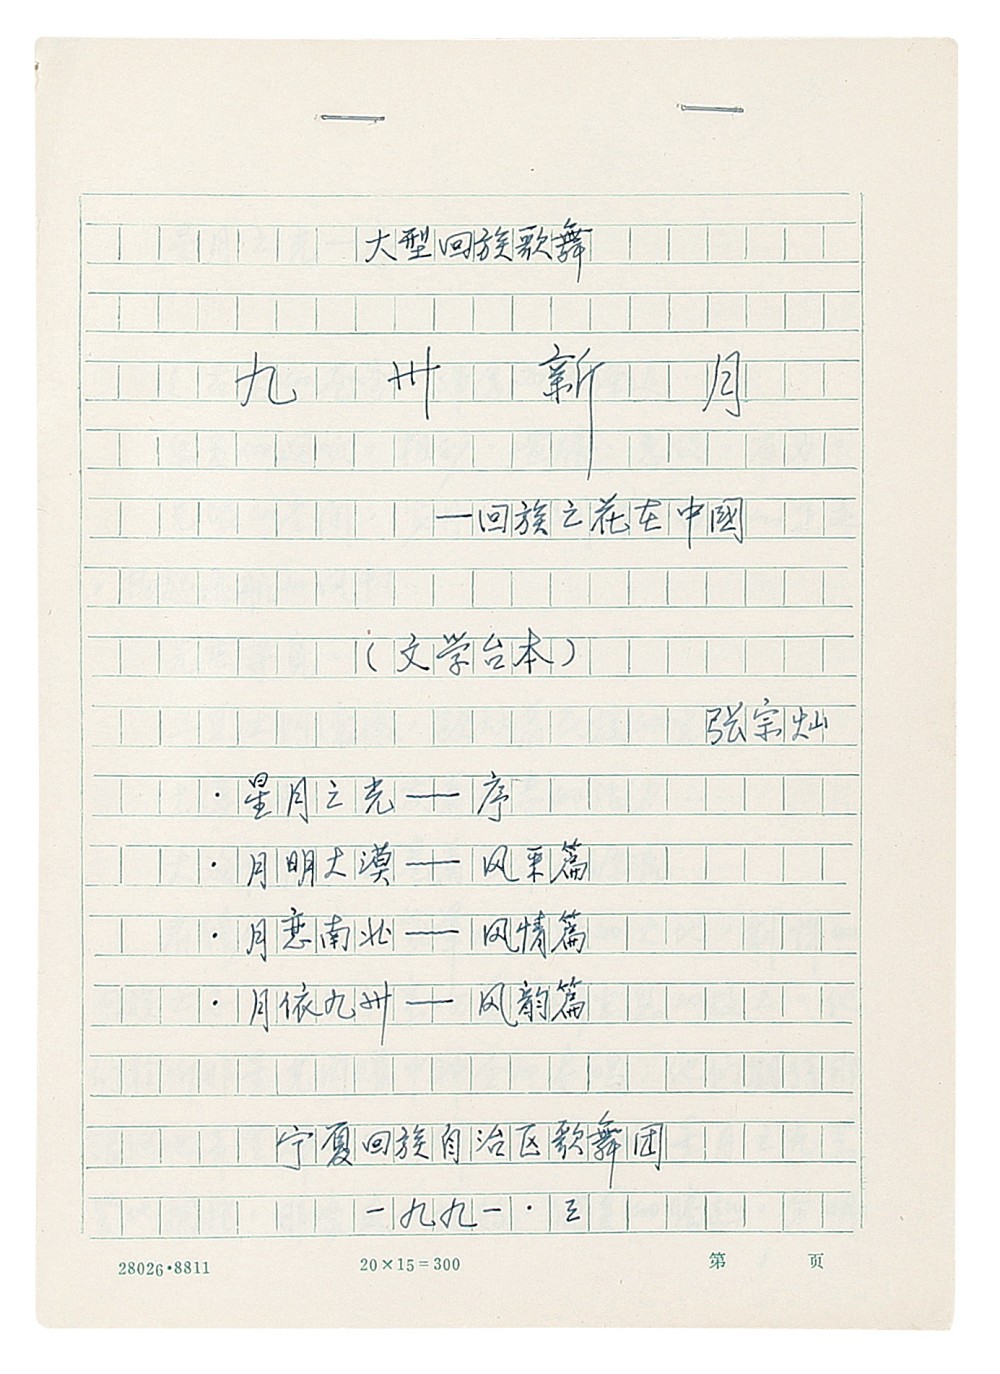 大型回族歌舞
九州新月
—回族之花在中國
（文学台本）
张宗灿
·星月之光——序
·月明大漠——风采篇
·月恋南北——风情篇
·月依九州——风韵篇
宁夏回族自治区歌舞团
一九九一·三
28026·8811 20×15=300 第 页